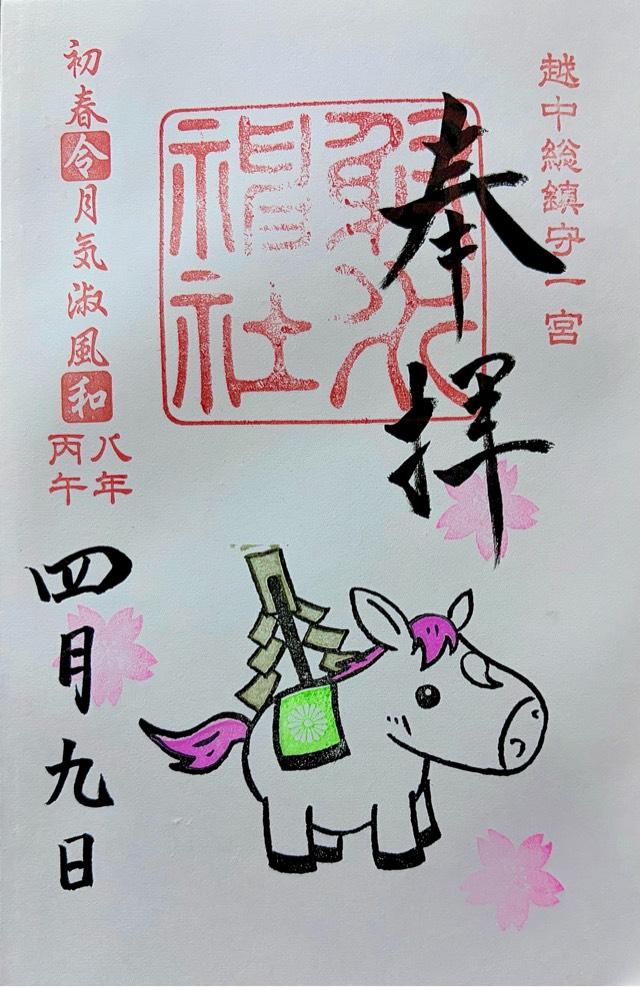 越中総鎮守一宮
奉拝
射水神社
初春令月気淑風和
八年
丙午
四月九日